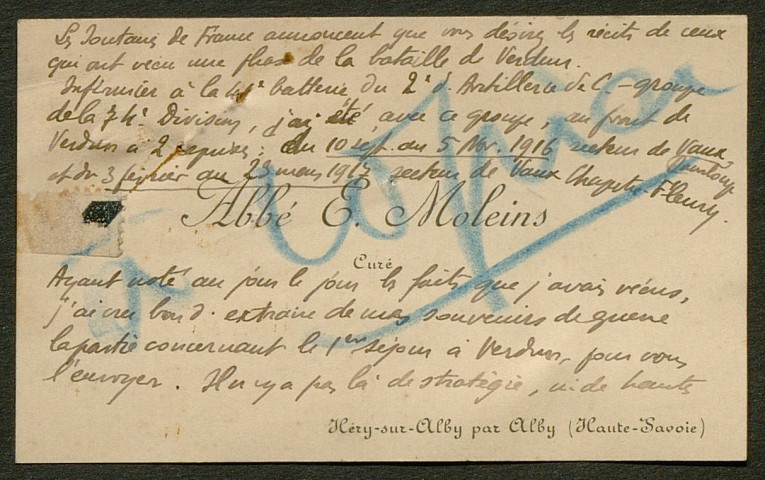 Les Soutanes de France annoncent que vous désirez les récits de ceux
qui ont vécu une phase de la bataille de Verdun.
Infirmier à la 41e batterie du 2e d'Artillerie de C. - groupe
de la 74e Division, j'ai été, avec ce groupe, au front de
Verdun à 2 reprises : du 10 sept. au 5 Nov. 1916 secteur de Vaux
et du 3 février au 23 mars 1917 secteur de Vaux Chapitre - Fleury.
à copier
Abbé E. Moleins
Curé
Ayant noté au jour le jour les faits que j'avais vécus,
j'ai cru bon d'extraire de mes souvenirs de guerre
la partie concernant le 1er séjour à Verdun, pour vous
l'envoyer. Il n'y a pas là de stratégie, ni de hauts
Héry-sur-Alby par Alby (Haute-Savoie)